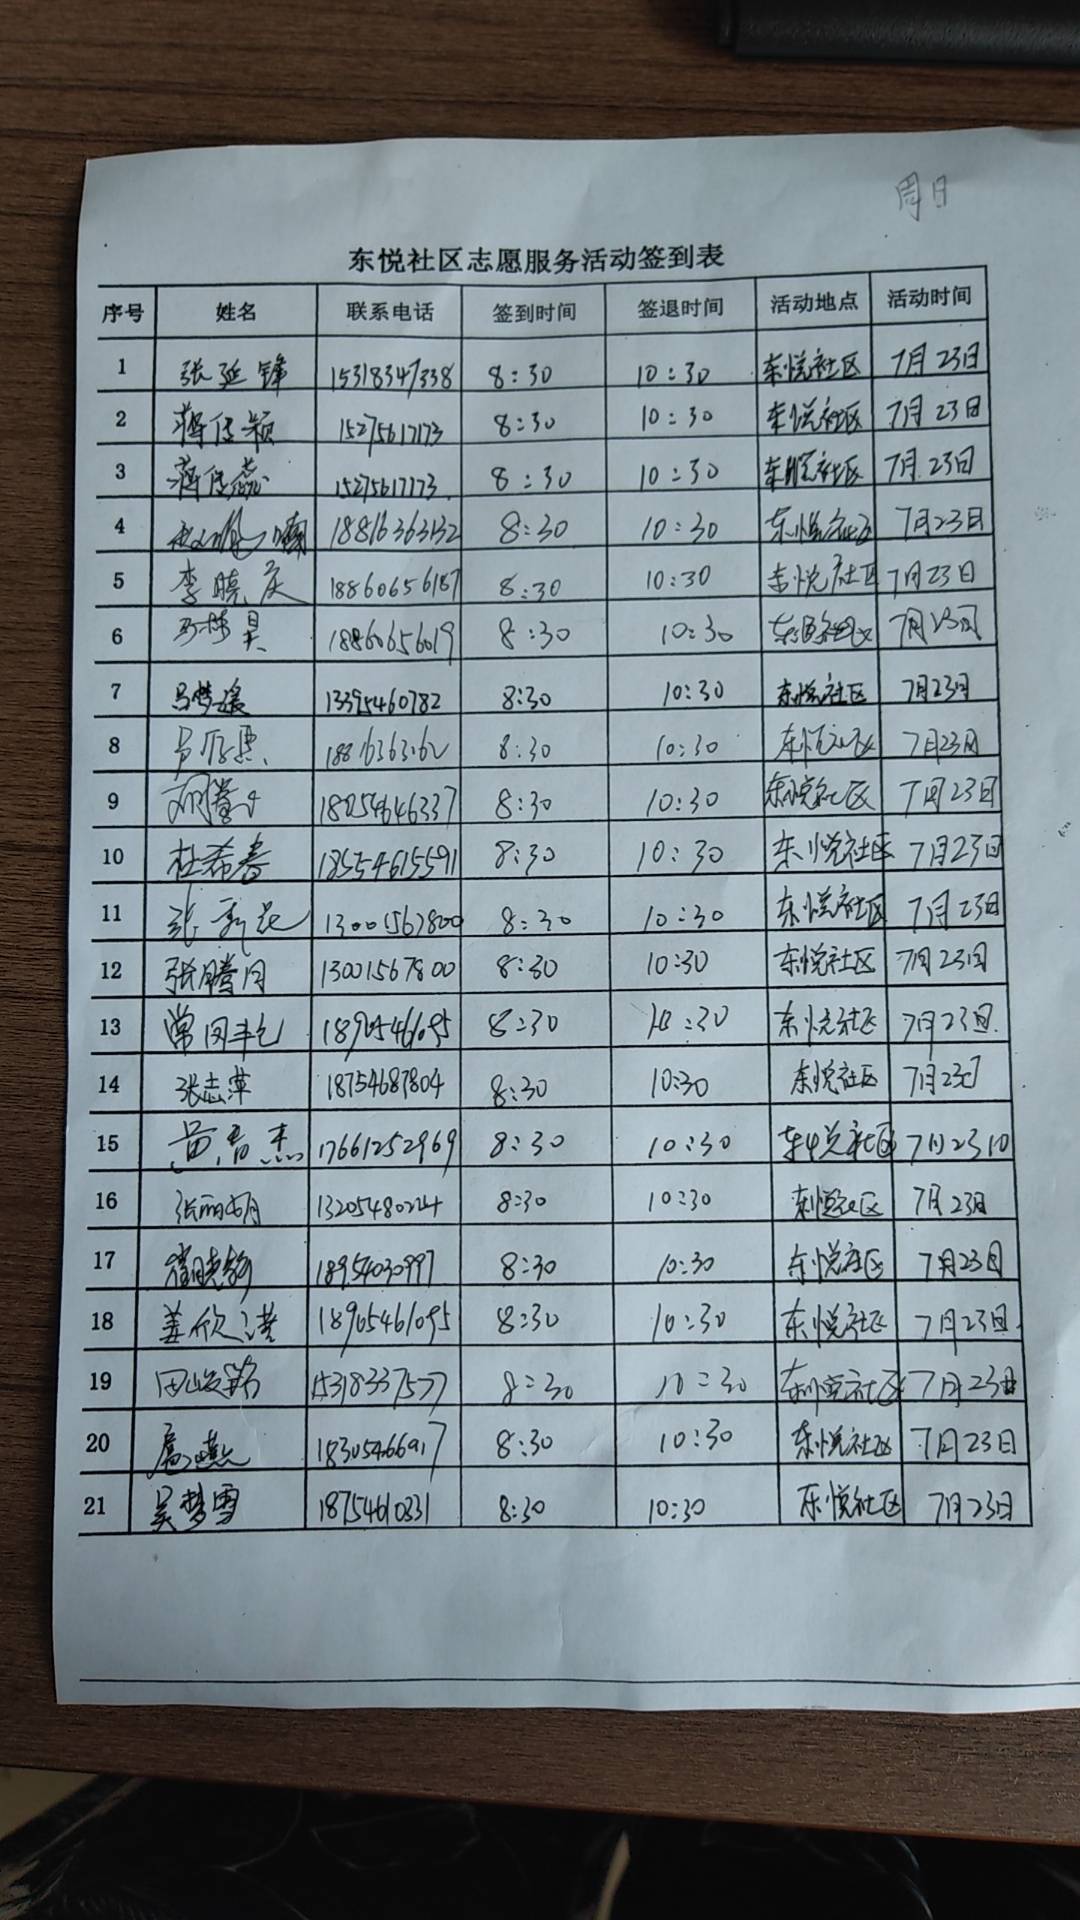 周日
东悦社区志愿服务活动签到表
序号 姓名 联系电话 签到时间 签退时间 活动地点 活动时间
1 张延锋 15318347338 8:30 10:30 东悦社区 7月23日
2 蒋佳颖 15275617173 8:30 10:30 东悦社区 7月23日
3 蒋佳蕊 15275617173 8:30 10:30 东悦社区 7月23日
4 18816363132 8:30 10:30 东悦社区 7月23日
5 李晓庆 18860656187 8:30 10:30 东悦社区 7月23日
6 18860656019 8:30 10:30 东悦社区 7月23日
7 马梦媛 13395460782 8:30 10:30 东悦社区 7月23日
8 8:30 10:30 东悦社区 7月23日
9 18254646337 8:30 10:30 东悦社区 7月23日
10 杜希春 18554615591 8:30 10:30 东悦社区 7月23日
11 张新花 13001567800 8:30 10:30 东悦社区 7月23日
12 张腾月 13001567800 8:30 10:30 东悦社区 7月23日
13 8:30 10:30 东悦社区 7月23日
14 张志萍 18754687804 8:30 10:30 东悦社区 7月23日
15 17661252969 8:30 10:30 东悦社区 7月23日
16 张丽娟 13205480224 8:30 10:30 东悦社区 7月23日
17 18954030997 8:30 10:30 东悦社区 7月23日
18 姜欣 8:30 10:30 东悦社区 7月23日
19 15318337577 8:30 10:30 东悦社区 7月23日
20 8:30 10:30 东悦社区 7月23日
21 吴梦雪 18754610331 8:30 10:30 东悦社区 7月23日